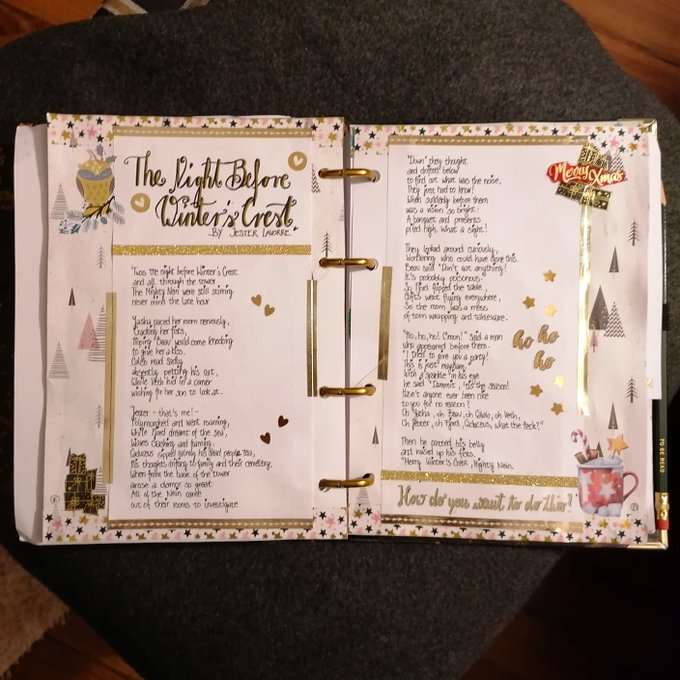 The Night Before
Winter's Crest.
-BY JESTER LAVORRE.
'Twas the night before Winter's Crest
and all through the tower
The Mighty Nein were still stirring
never mind the late hour
Yasha paced her room nervously,
Cracking her fists,
Hoping Beau would come knocking
to give her a kiss.
Caleb read sadly
absently petting his cat,
While Veth hid in a corner
wishing for her son to look at.
Jester - that's me! -
Polymorphed and went roaming,
While Fjord dreams of the sea,
Waves crashing and foaming.
Caduceus sipped calmly his dead people tea,
his thoughts drifting to family and their cemetery.
When from the base of the tower
arose a clamor so great
All of the Nein came
out of their rooms to investigate
"Down" they thought
and drifted below
to find out what was the noise,
They just had to know!
When suddenly before them
was a vision so bright:
A banquet and presents
piled high. What a sight!
They looked around curiously,
Wondering who could have done this.
Beau said "Don't eat anything!
It's probably poisonous."
So Fjord flipped the table,
Gifts went flying everywhere,
So the room was a mess
of torn wrapping and tableware.
"Ho, ho, ho! C'mon!" Said a man
who appeared before them.
"I tried to give you a party!
This is just mayhem."
With a sparkle in his eye
he said "Dammit, 'tis the season!
Hasn't anyone ever been nice
to you for no reason?
Oh Yasha, oh Beau, oh Caleb, oh Veth,
Oh Jester, oh Fjord, Caduceus, what the heck?"
Then he patted his belly
and raised up his fists.
"Merry Winter's Crest, Mighty Nein.
How do you want to do this?
Merry Xmas
ho ho
ho
TO BE READ